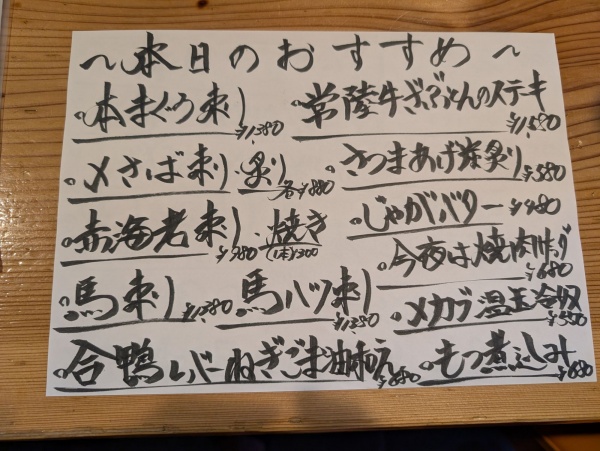 〜本日のおすすめ〜
本まぐろ刺 ¥1,380
常陸牛ざぶとんのステキ ¥1,880
〆さば刺・炙り 各¥880
さつまあげ炭炙り ¥580
赤海老刺 ¥980・焼き (1本)¥300
じゃがバター ¥480
今夜は焼肉 ¥680
馬刺 ¥1,280
馬ハツ刺 ¥1,280
メカブ温玉冷奴 ¥550
合鴨レバーねぎごま油和え
もつ煮込み